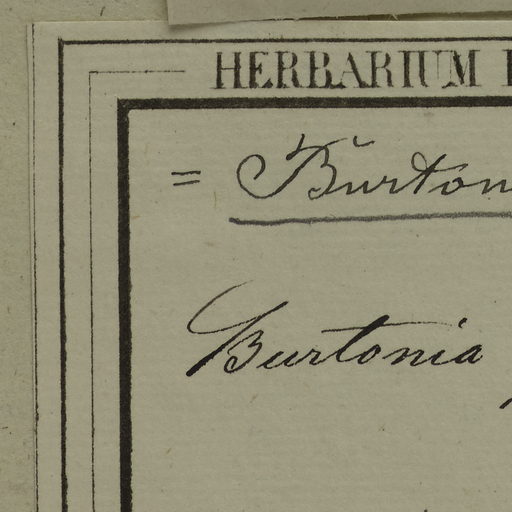 HERBARIUM
= Burton
Burtonia